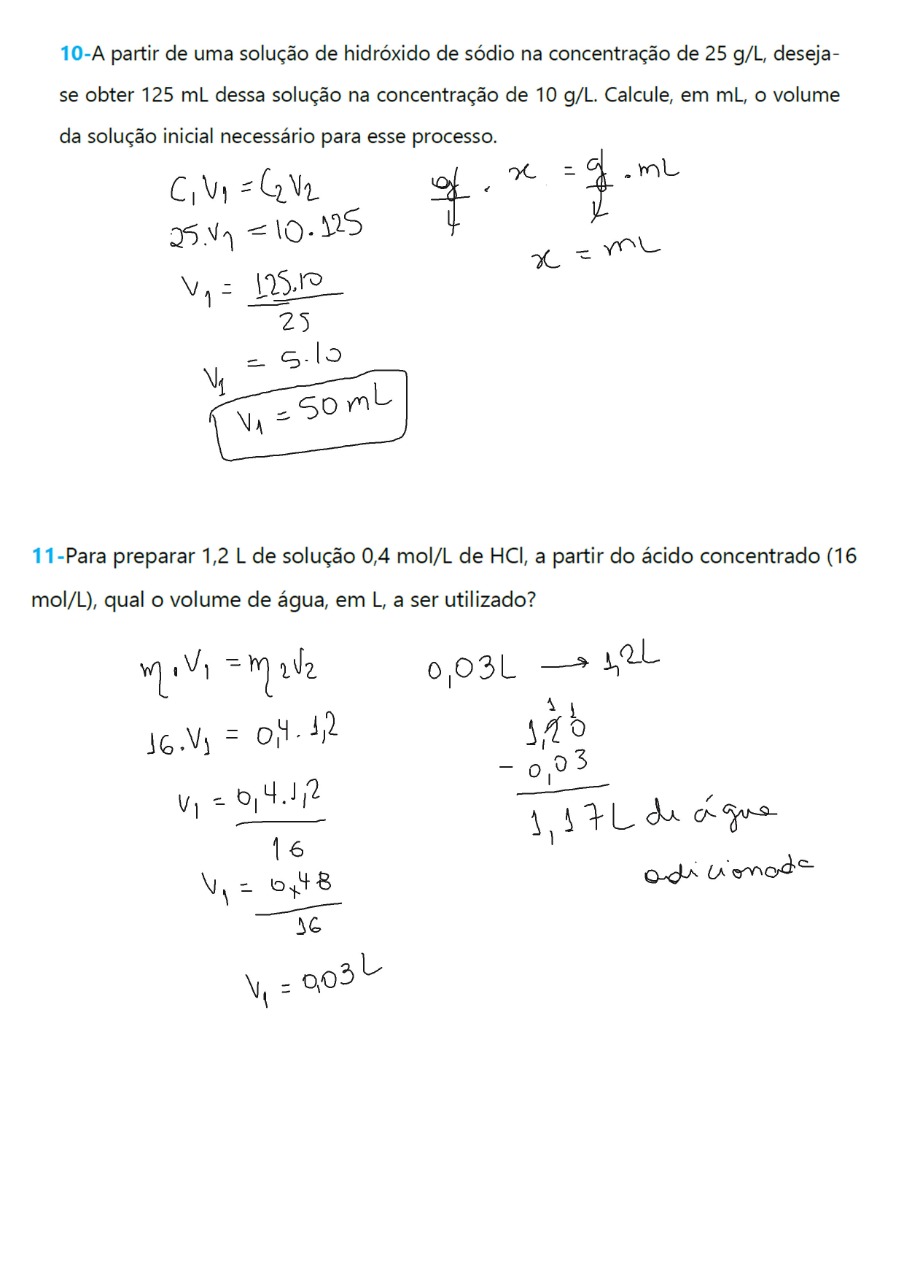 10-A partir de uma solução de hidróxido de sódio na concentração de 25 g/L, deseja-
se obter 125 mL dessa solução na concentração de 10 g/L. Calcule, em mL, o volume
da solução inicial necessário para esse processo.
C₁V₁ = C₂V₂
25.V₁ = 10.125
V₁ = 125.10
25
V₁ = 5.10
V₁ = 50 mL
g/L . x = g/L . mL
x = mL
11-Para preparar 1,2 L de solução 0,4 mol/L de HCl, a partir do ácido concentrado (16
mol/L), qual o volume de água, em L, a ser utilizado?
η₁V₁ = η₂V₂
16.V₁ = 0,4.1,2
V₁ = 0,4.1,2
16
V₁ = 0,48
16
V₁ = 0,03 L
0,03L → 1,2L
1 1
1,20
- 0,03
1,17L de água
adicionada